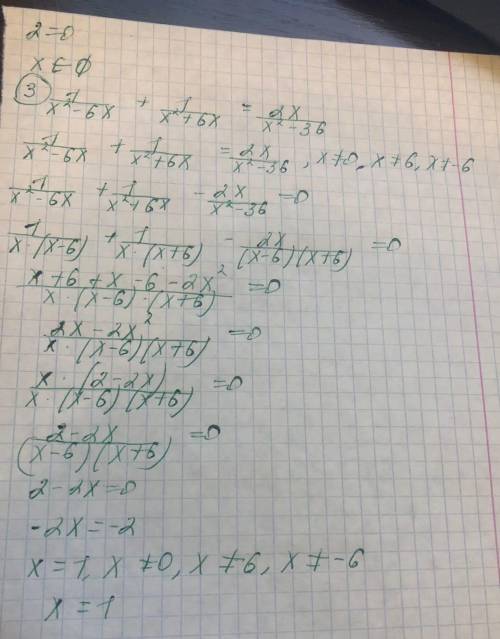 2=0
x ∈ ∅
③ 1/(x²-6x) + 1/(x²+6x) = 2x/(x²-36)
1/(x²-6x) + 1/(x²+6x) = 2x/(x²-36), x≠0, x≠6, x≠-6
1/(x²-6x) + 1/(x²+6x) - 2x/(x²-36) = 0
1/(x·(x-6)) + 1/(x·(x+6)) - 2x/((x-6)(x+6)) = 0
(x+6+x-6-2x²)/(x·(x-6)·(x+6)) = 0
(2x-2x²)/(x·(x-6)(x+6)) = 0
(x·(2-2x))/(x·(x-6)(x+6)) = 0
(2-2x)/((x-6)(x+6)) = 0
2-2x=0
-2x=-2
x=1, x≠0, x≠6, x≠-6
x=1